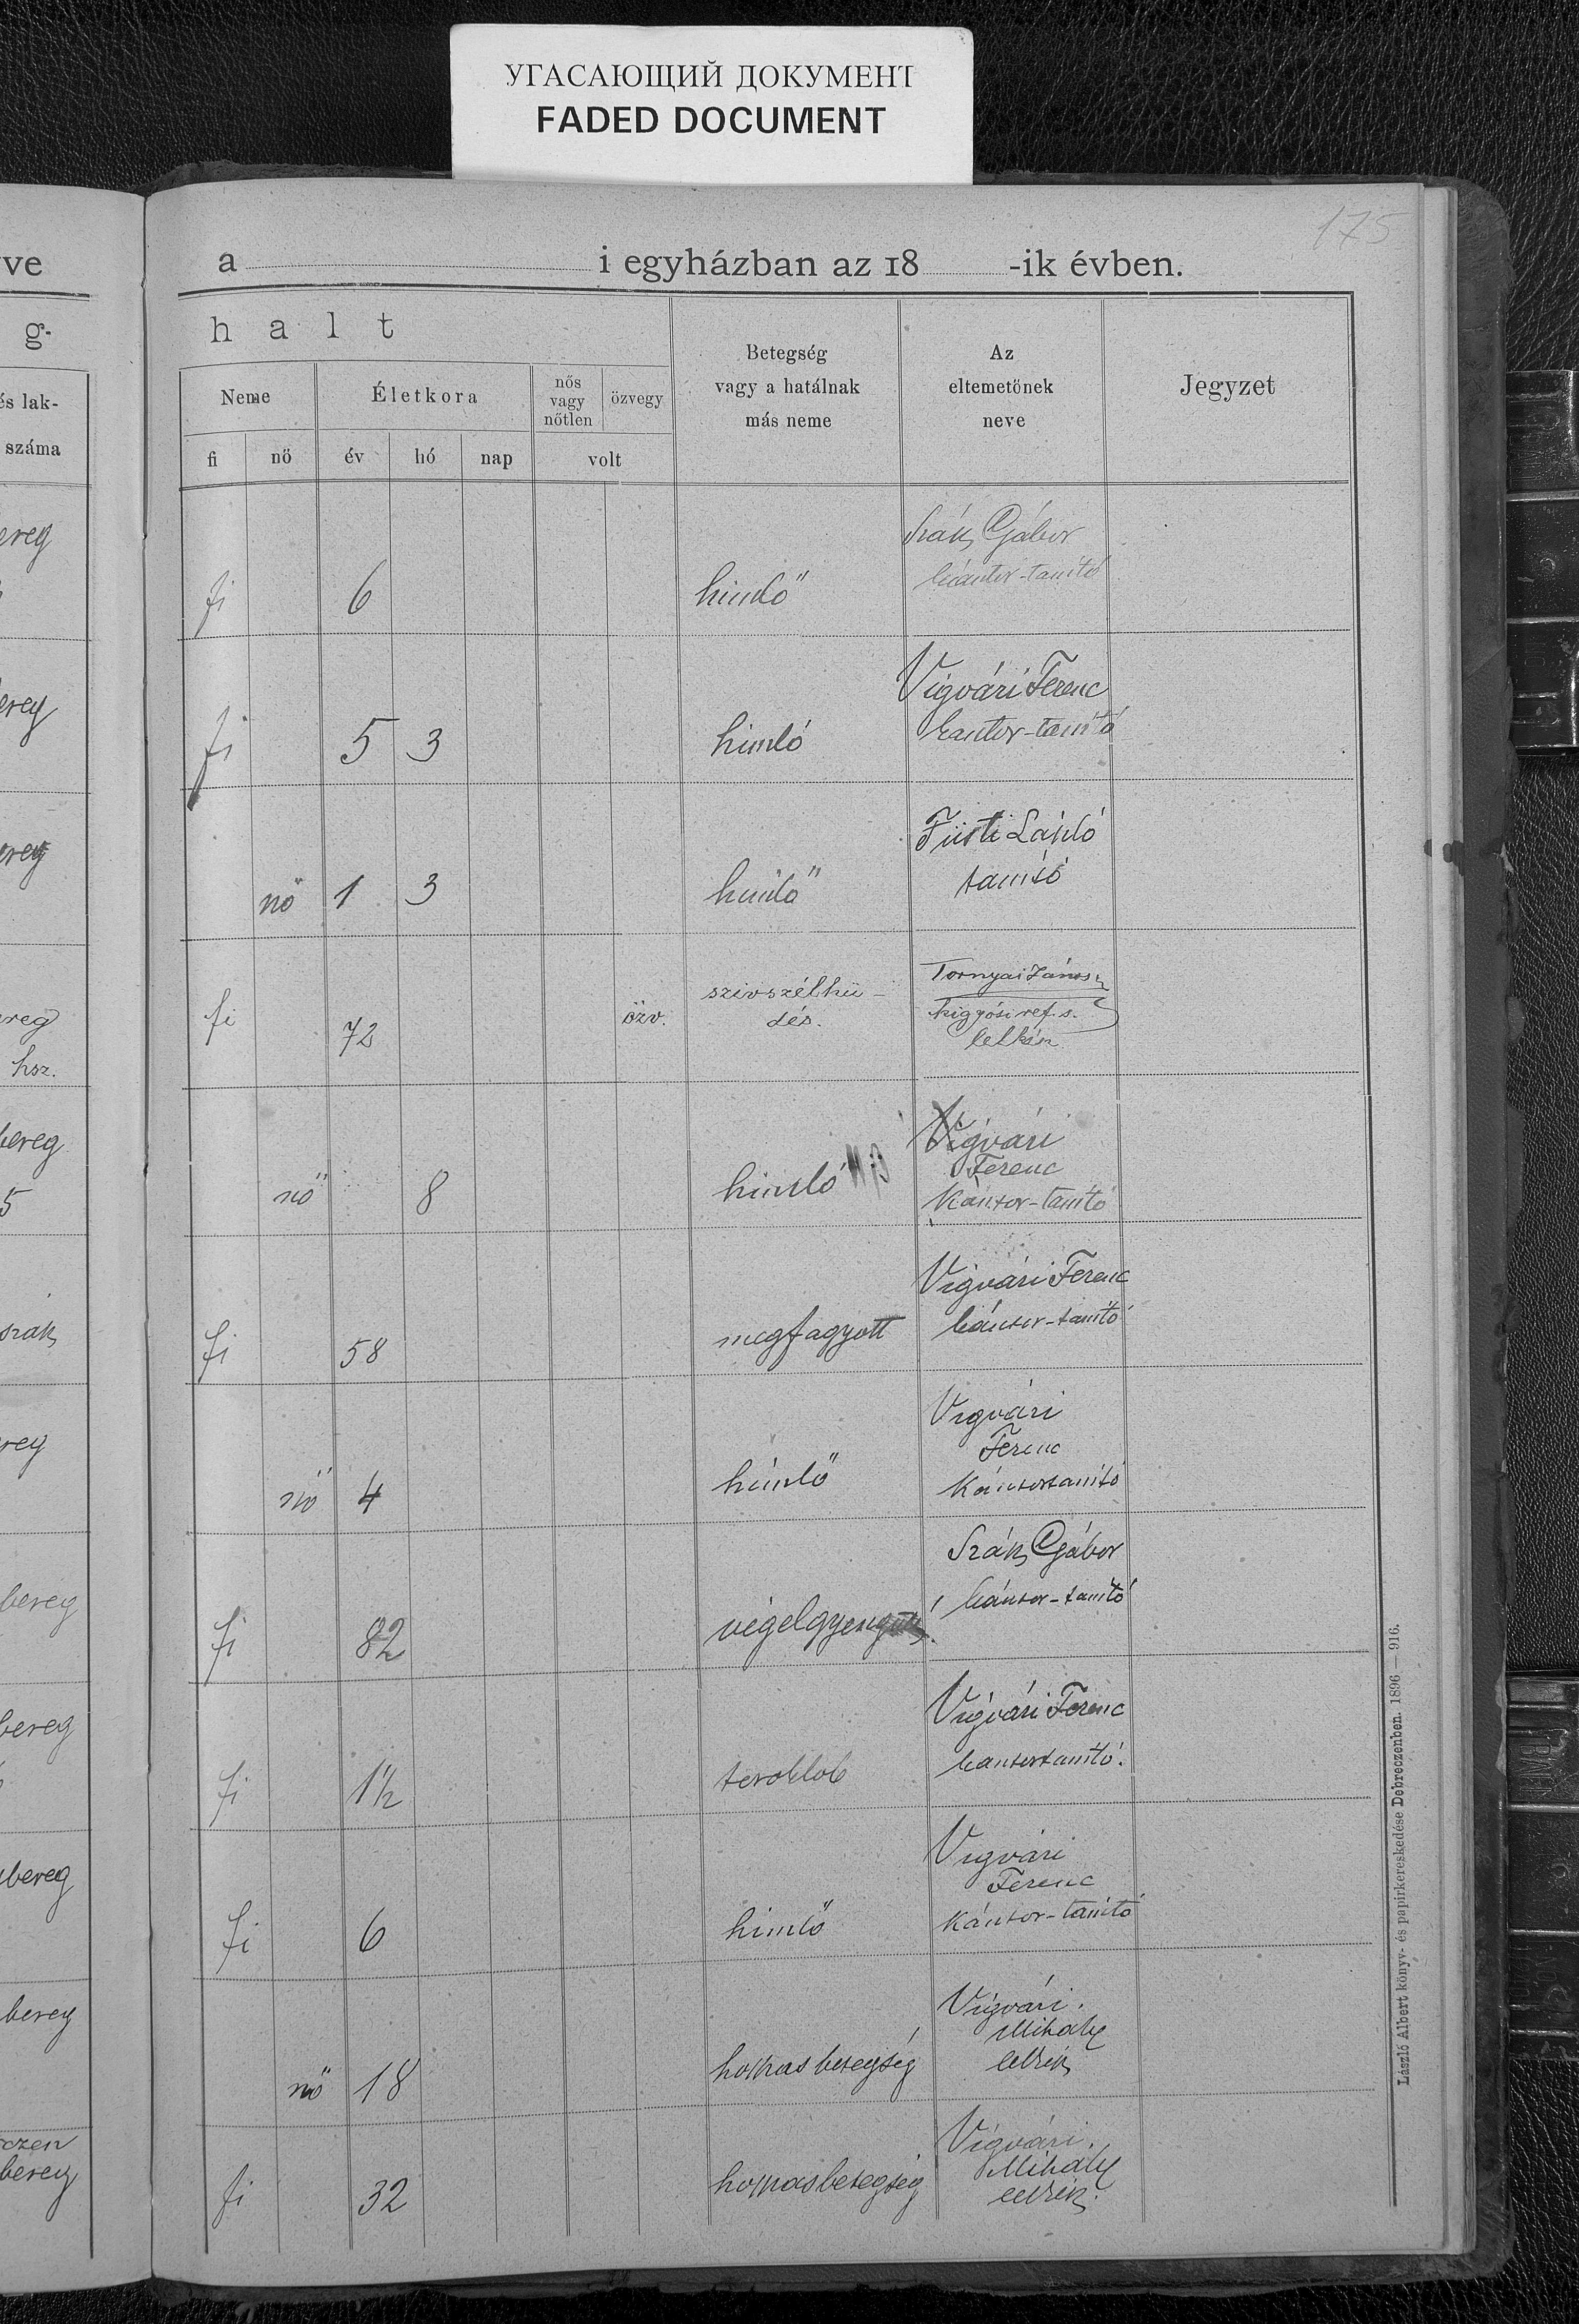 УГАСАЮЩИЙ ДОКУМЕНТ
FADED DOCUMENT
175
ve a i egyházban az 18 -ik évben.
g.
halt
és lak-
száma
Neme Életkora nős vagy nőtlen özvegy
fi nő év hó nap volt
Betegség
vagy a hatálnak
más neme
Az
eltemetőnek
neve
Jegyzet
ereg
fi 6 himlő
Szák Gábor
kántor-tanító
ereg
fi 5 3 himló
Vigvári Ferenc
kantor-tanító
ereg
nő 1 3 himlő
Füsti László
tanító
ereg
hsz.
fi 72 özv. szivszélhü-
dés.
Tornyai János
kigyósi ref. s.
lelkész
bereg
5
nő 8 himló
Vigvári
Ferenc
Kántor-tanító
szak
fi 58 megfagyott
Vigvári Ferenc
kántor-tanító
ereg
nő 4 himlő
Vigvári
Ferenc
Kántortanító
bereg
fi 82
Szák Gábor
kántor-tanító
bereg
fi 1½ toroklob
Vigvári Ferenc
kantortanító.
bereg
fi 6 himlő
Vigvári
Ferenc
Kántor-tanító
bereg
nő 18 hosszas betegség
Vigvári
Mihály
lelkész
czen
bereg
fi 32 hosszas betegség
Vigvári
Mihály
lelkész.
László Albert könyv- és papirkereskedése Debreczenben. 1896 — 916.